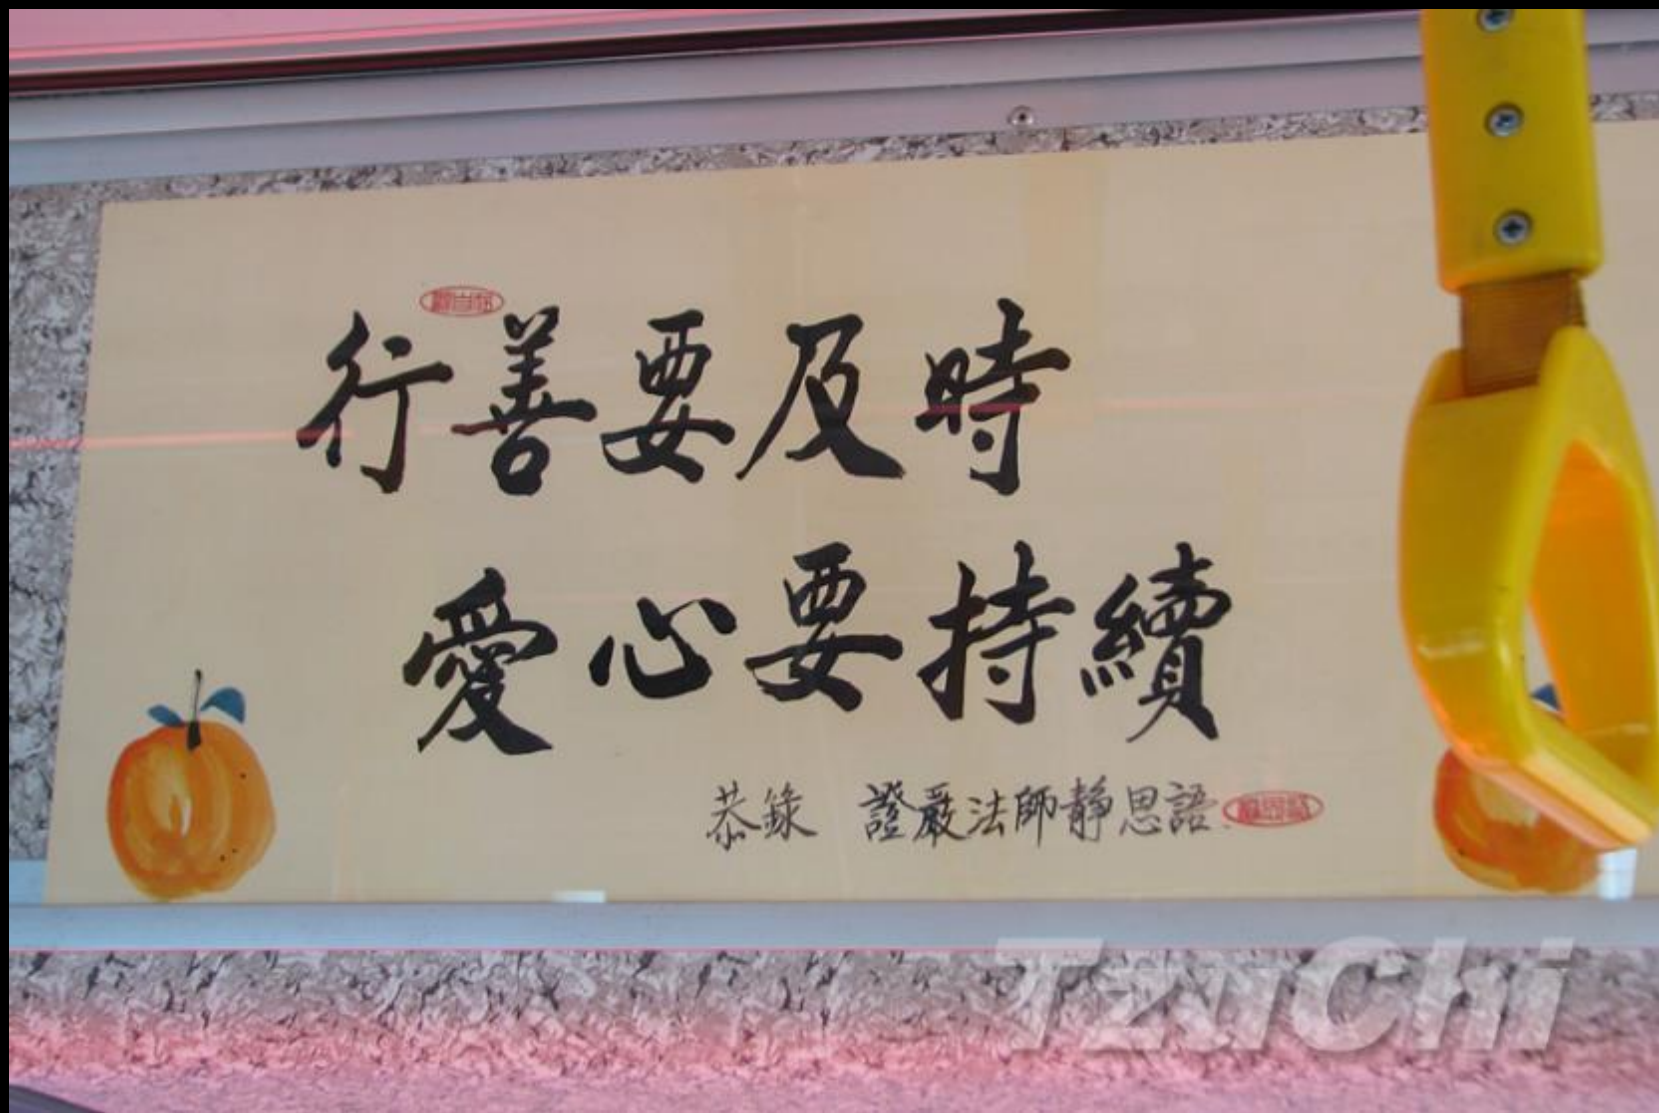 行善要及時
愛心要持續
恭錄 證嚴法師靜思語
TzuChi